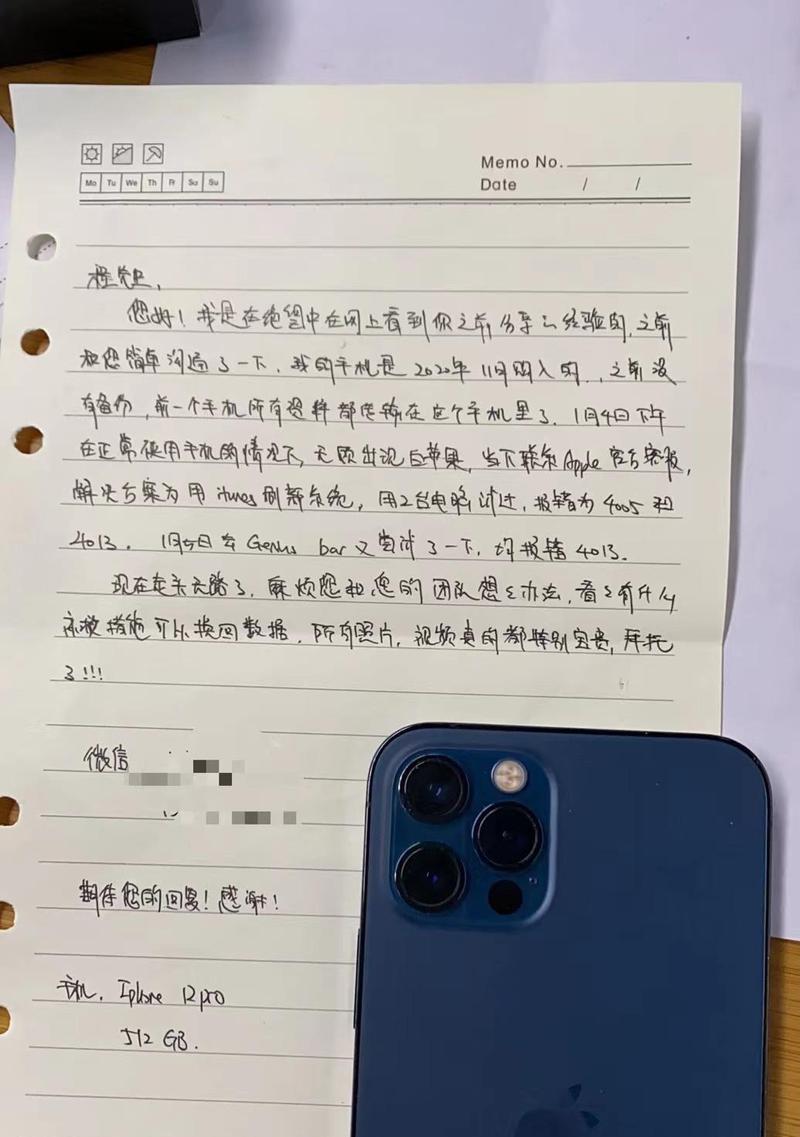 Memo No.
Mo Tu We Th Fr Sa Su
Date / /
您好！我是在绝望中在网上看到你之前分享的经验的，之前
和您简单沟通了一下，我的手机是2020年11月购入的，之前没
有备份，前一个手机所有资料都传输在这个手机里了。1月4日下午
在正常使用手机的情况下，无预出现白苹果，当下联系Apple官方客服，
解决方案为用itunes刷新系统，用2台电脑试过，报错为4005和
4013。1月5日去Genius bar又尝试了一下，均报错4013。
现在走头无路了，麻烦您和您的团队想想办法，看看有什么
补救措施可以换回数据，所有照片，视频真的都特别宝贵，拜托
了!!!
微信
期待您的回复！感谢！
手机，Iphone 12pro
512 GB.